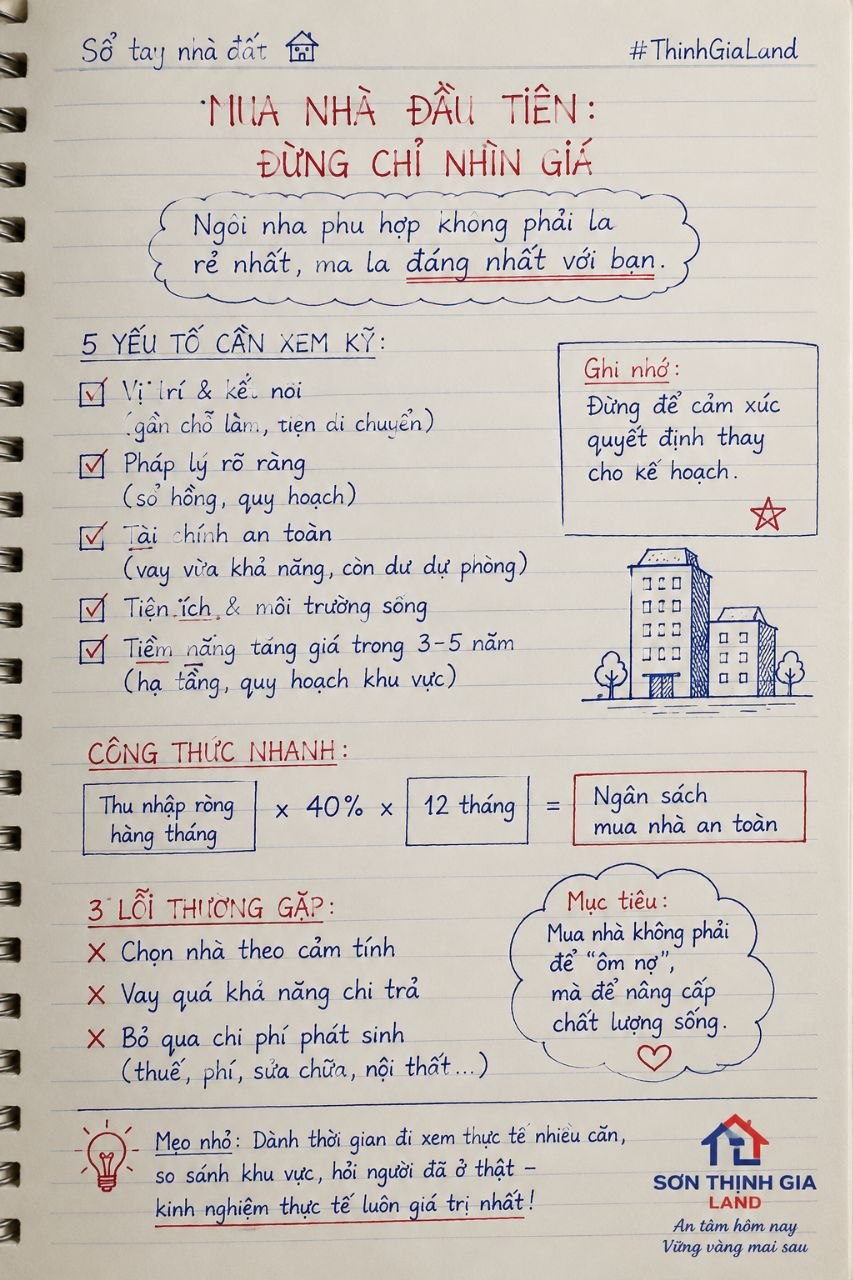 Sổ tay nhà đất
#ThinhGiaLand
MUA NHÀ ĐẦU TIÊN:
ĐỪNG CHỈ NHÌN GIÁ
Ngôi nha phu hợp không phải la
rẻ nhất, ma la đáng nhất với bạn.
5 YẾU TỐ CẦN XEM KỸ:
Vị trí & kết nối
(gần chỗ làm, tiện di chuyển)
Pháp lý rõ ràng
(sổ hồng, quy hoạch)
Tài chính an toàn
(vay vừa khả năng, còn dư dự phòng)
Tiện ích & môi trường sống
Tiềm năng tăng giá trong 3-5 năm
(hạ tầng, quy hoạch khu vực)
Ghi nhớ:
Đừng để cảm xúc
quyết định thay
cho kế hoạch.
CÔNG THỨC NHANH:
Thu nhập ròng
hàng tháng
x 40% x
12 tháng
=
Ngân sách
mua nhà an toàn
3 LỖI THƯỜNG GẶP:
X Chọn nhà theo cảm tính
X Vay quá khả năng chi trả
X Bỏ qua chi phí phát sinh
(thuế, phí, sửa chữa, nội thất...)
Mục tiêu:
Mua nhà không phải
để "ôm nợ",
mà để nâng cấp
chất lượng sống.
Mẹo nhỏ: Dành thời gian đi xem thực tế nhiều căn,
so sánh khu vực, hỏi người đã ở thật –
kinh nghiệm thực tế luôn giá trị nhất!
SƠN THỊNH GIA
LAND
An tâm hôm nay
Vững vàng mai sau